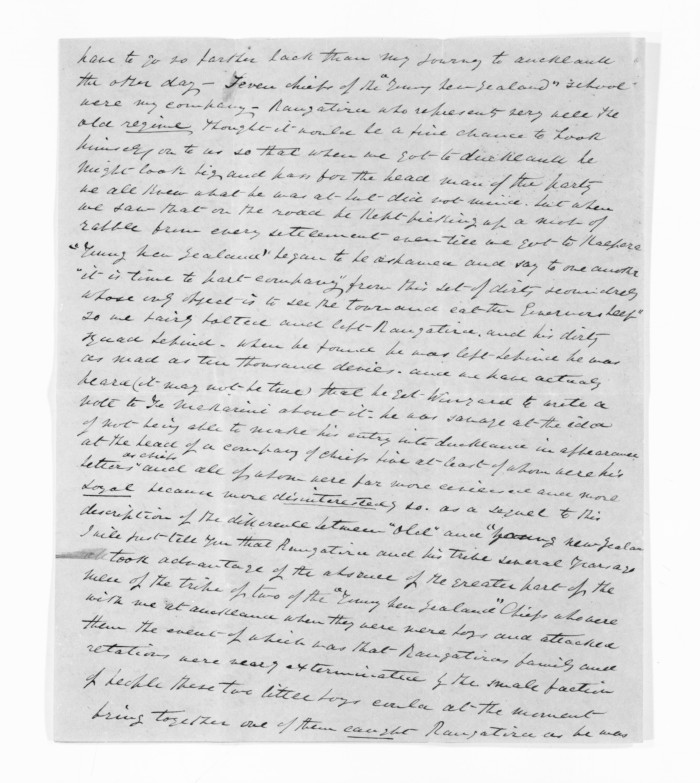 have to go no farther back than my journey to auckland
the other day - Seven chiefs of the "Young New Zealand" School
were my company - Rangatira who represents very well the
old regime, thought it would be a fine chance to hook
himself on to us so that when we got to Auckland he
might look big, and pass for the head man of the party
we all knew what he was at but did not mind. but when
we saw that on the road he kept picking up a mob of
rabble from every settlement even till we got to Kaipara
"Young New Zealand" began to be ashamed and say to one another
"it is time to part company, from this set of dirty scoundrels
whose only object is to see the town and eat the Governors beef"
So we fairly bolted and left Rangatira, and his dirty
squad behind - when he found he was left behind he was
as mad as ten thousand devils - and we have actualy
heard (it may not be true) that he got Winyard to write a
note to Te Makarini about it - he was savage at the idea
of not being able to make his entry into Auckland in appearance
at the head of a company of chiefs five at least of whom were his
as chiefs
betters and all of whom were far more civilised and more
loyal because more disinterestedly so. as a sequel to this
description of the difference between "Old" and "young New Zealand
I will just tell you that Rangatira and his tribe several years ago
took advantage of the absence of the greater part of the
men of the tribe of two of the "Young New Zealand" Chiefs who were
with me at auckland when they were mere boys and attacked
them the event of which was that Rangatiras family and
relations were nearly exterminated by the small faction
of people these two little boys could at the moment
bring together one of them caught Rangatira as he was